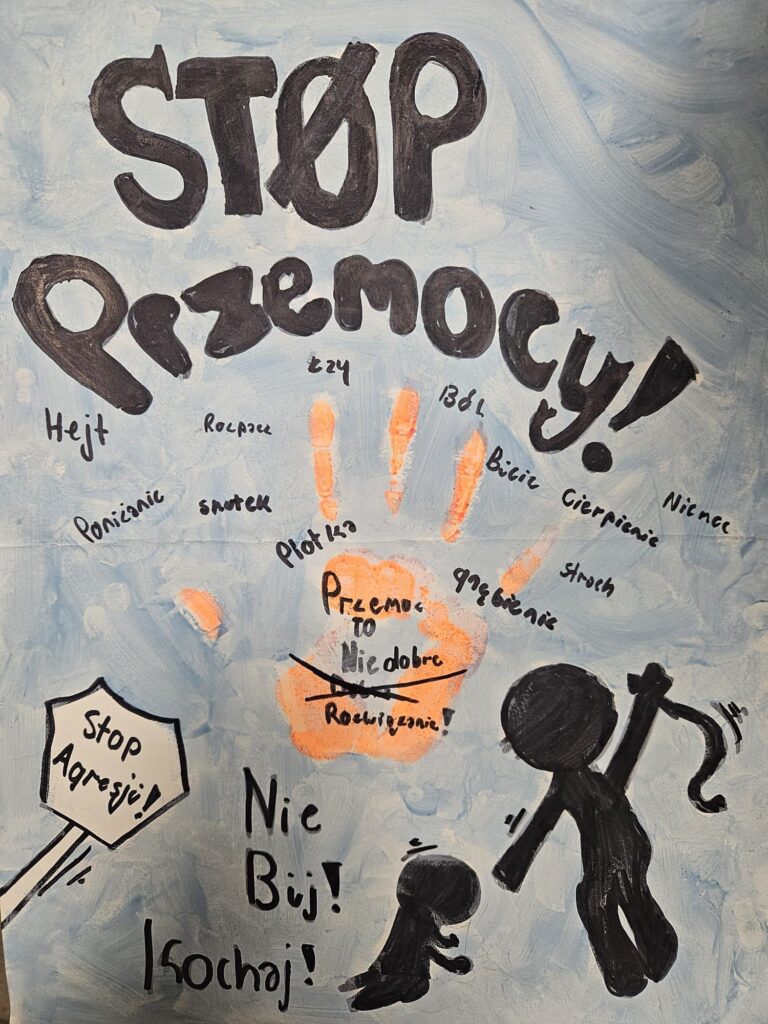 STØP
Przemocy!
Łzy
Ból
Hejt
Rozpacz
Bicie
Cierpienie
Nienec
Poniżanie
smutek
Plotka
stroch
gnębienie
Przemoc
TO
Nie dobre
Rozwiązanie!
Stop
Agresji!
Nie
Bij!
Kochaj!